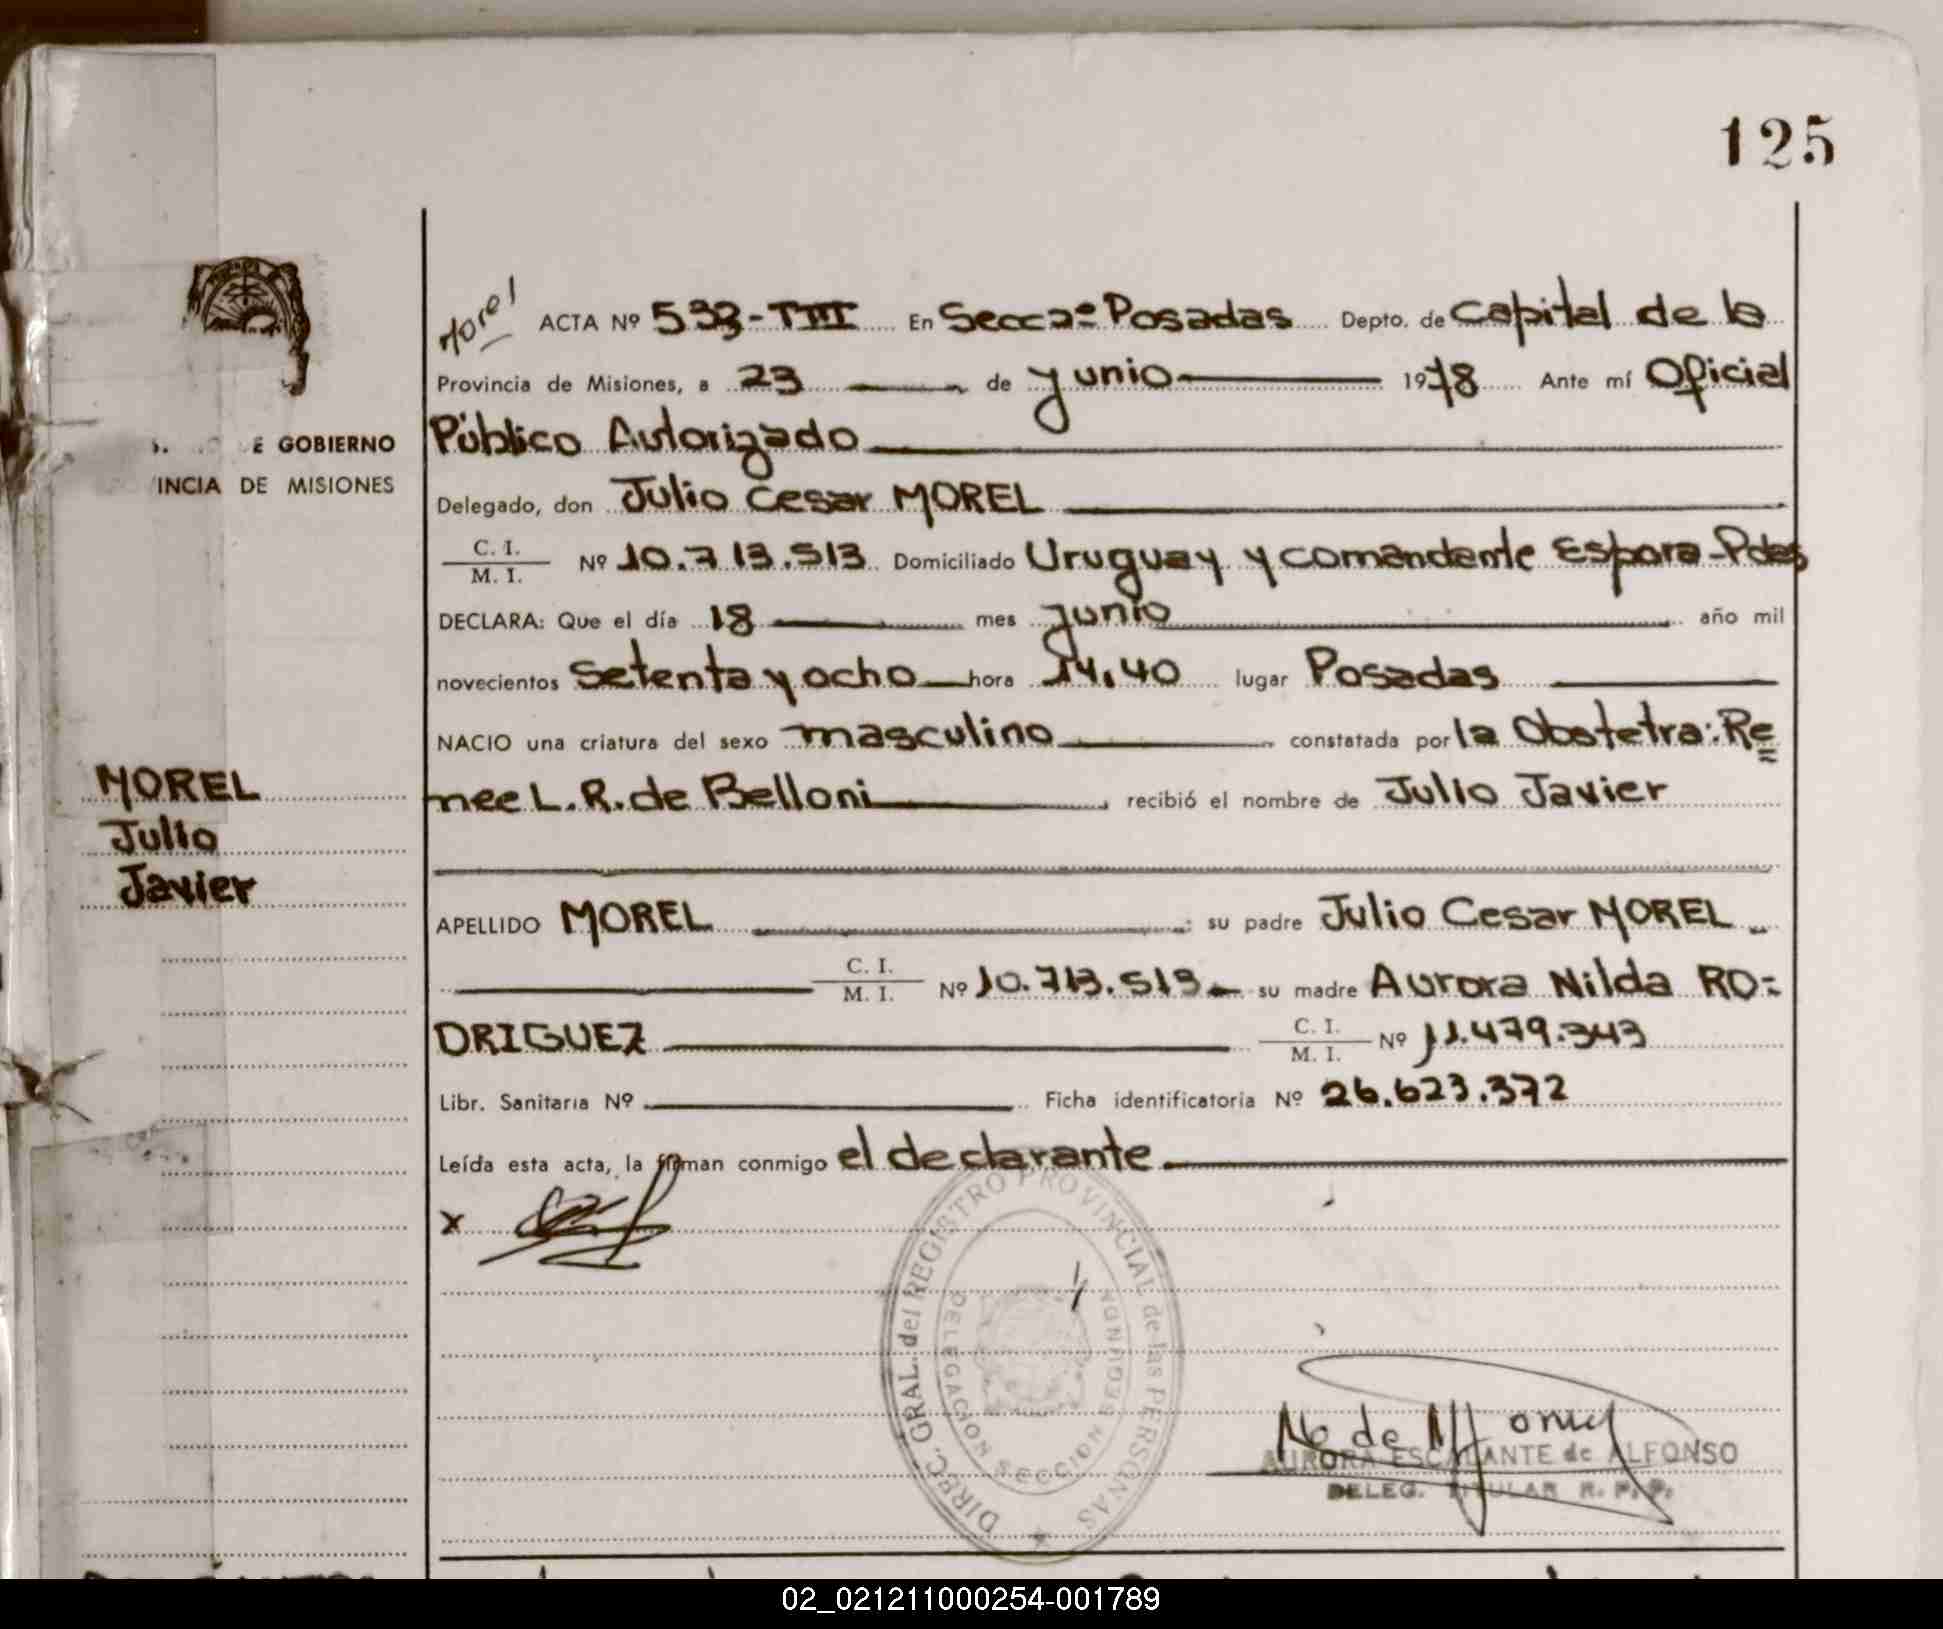 125
Morel
ACTA Nº 533-TIII En Secc 2º Posadas Depto. de Capital de la
Provincia de Misiones, a 23 de junio 1978 Ante mí Oficial
E GOBIERNO
INCIA DE MISIONES
Público Autorizado
Delegado, don Julio Cesar MOREL
C. I.
M. I. Nº 10.713.513 Domiciliado Uruguay y comandante Espora-Pdas
DECLARA: Que el día 18 mes junio año mil
novecientos setenta y ocho hora 14.40 lugar Posadas
NACIO una criatura del sexo masculino constatada por la Obstetra: Re=
nee L. R. de Belloni recibió el nombre de Julio Javier
MOREL
Julio
Javier
APELLIDO MOREL : su padre Julio Cesar MOREL
C. I.
M. I. Nº 10.713.513 su madre Aurora Nilda RO=
DRIGUEZ C. I.
M. I. Nº 11.479.343
Libr. Sanitaria Nº Ficha identificatoria Nº 26.623.372
Leída esta acta, la firman conmigo el declarante
x
DIREC. GRAL. del REGISTRO PROVINCIAL de las PERSONAS
DELEGACION SECCION SEGUNDA
AURORA ESCALANTE de ALFONSO
DELEG. TITULAR R. P. P.
02_021211000254-001789